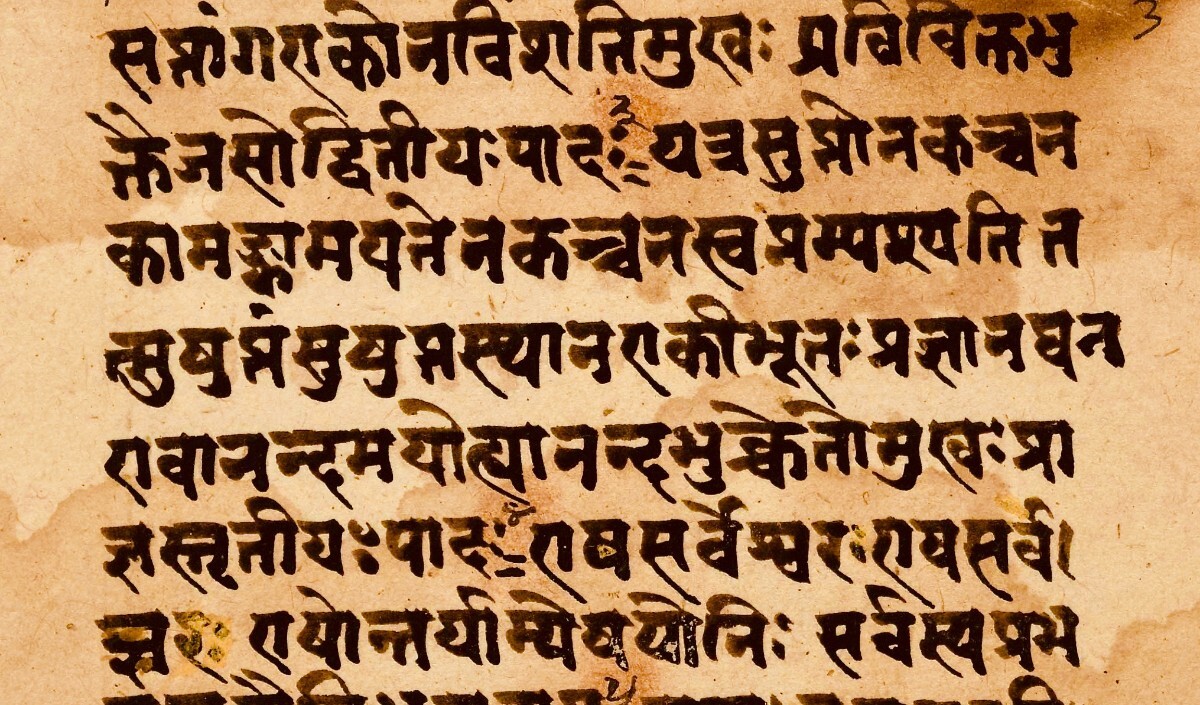 सप्तांगएकोनविंशतिमुखः प्रविविक्तभु
क्तैजसोद्वितीयःपादः २ यत्रसुप्तोनकञ्चन
कामङ्कामयतेनकञ्चनस्वप्नम्पश्यतित
त्सुषुप्तंसुषुप्तस्थानएकीभूतःप्रज्ञानघन
एवानन्दमयोह्यानन्दभुक्चेतोमुखःप्रा
ज्ञस्तृतीयःपादः ४ एषसर्वेश्वरःएषसर्व
ज्ञः एषोन्तर्याम्येषयोनिः सर्वस्यप्रभ